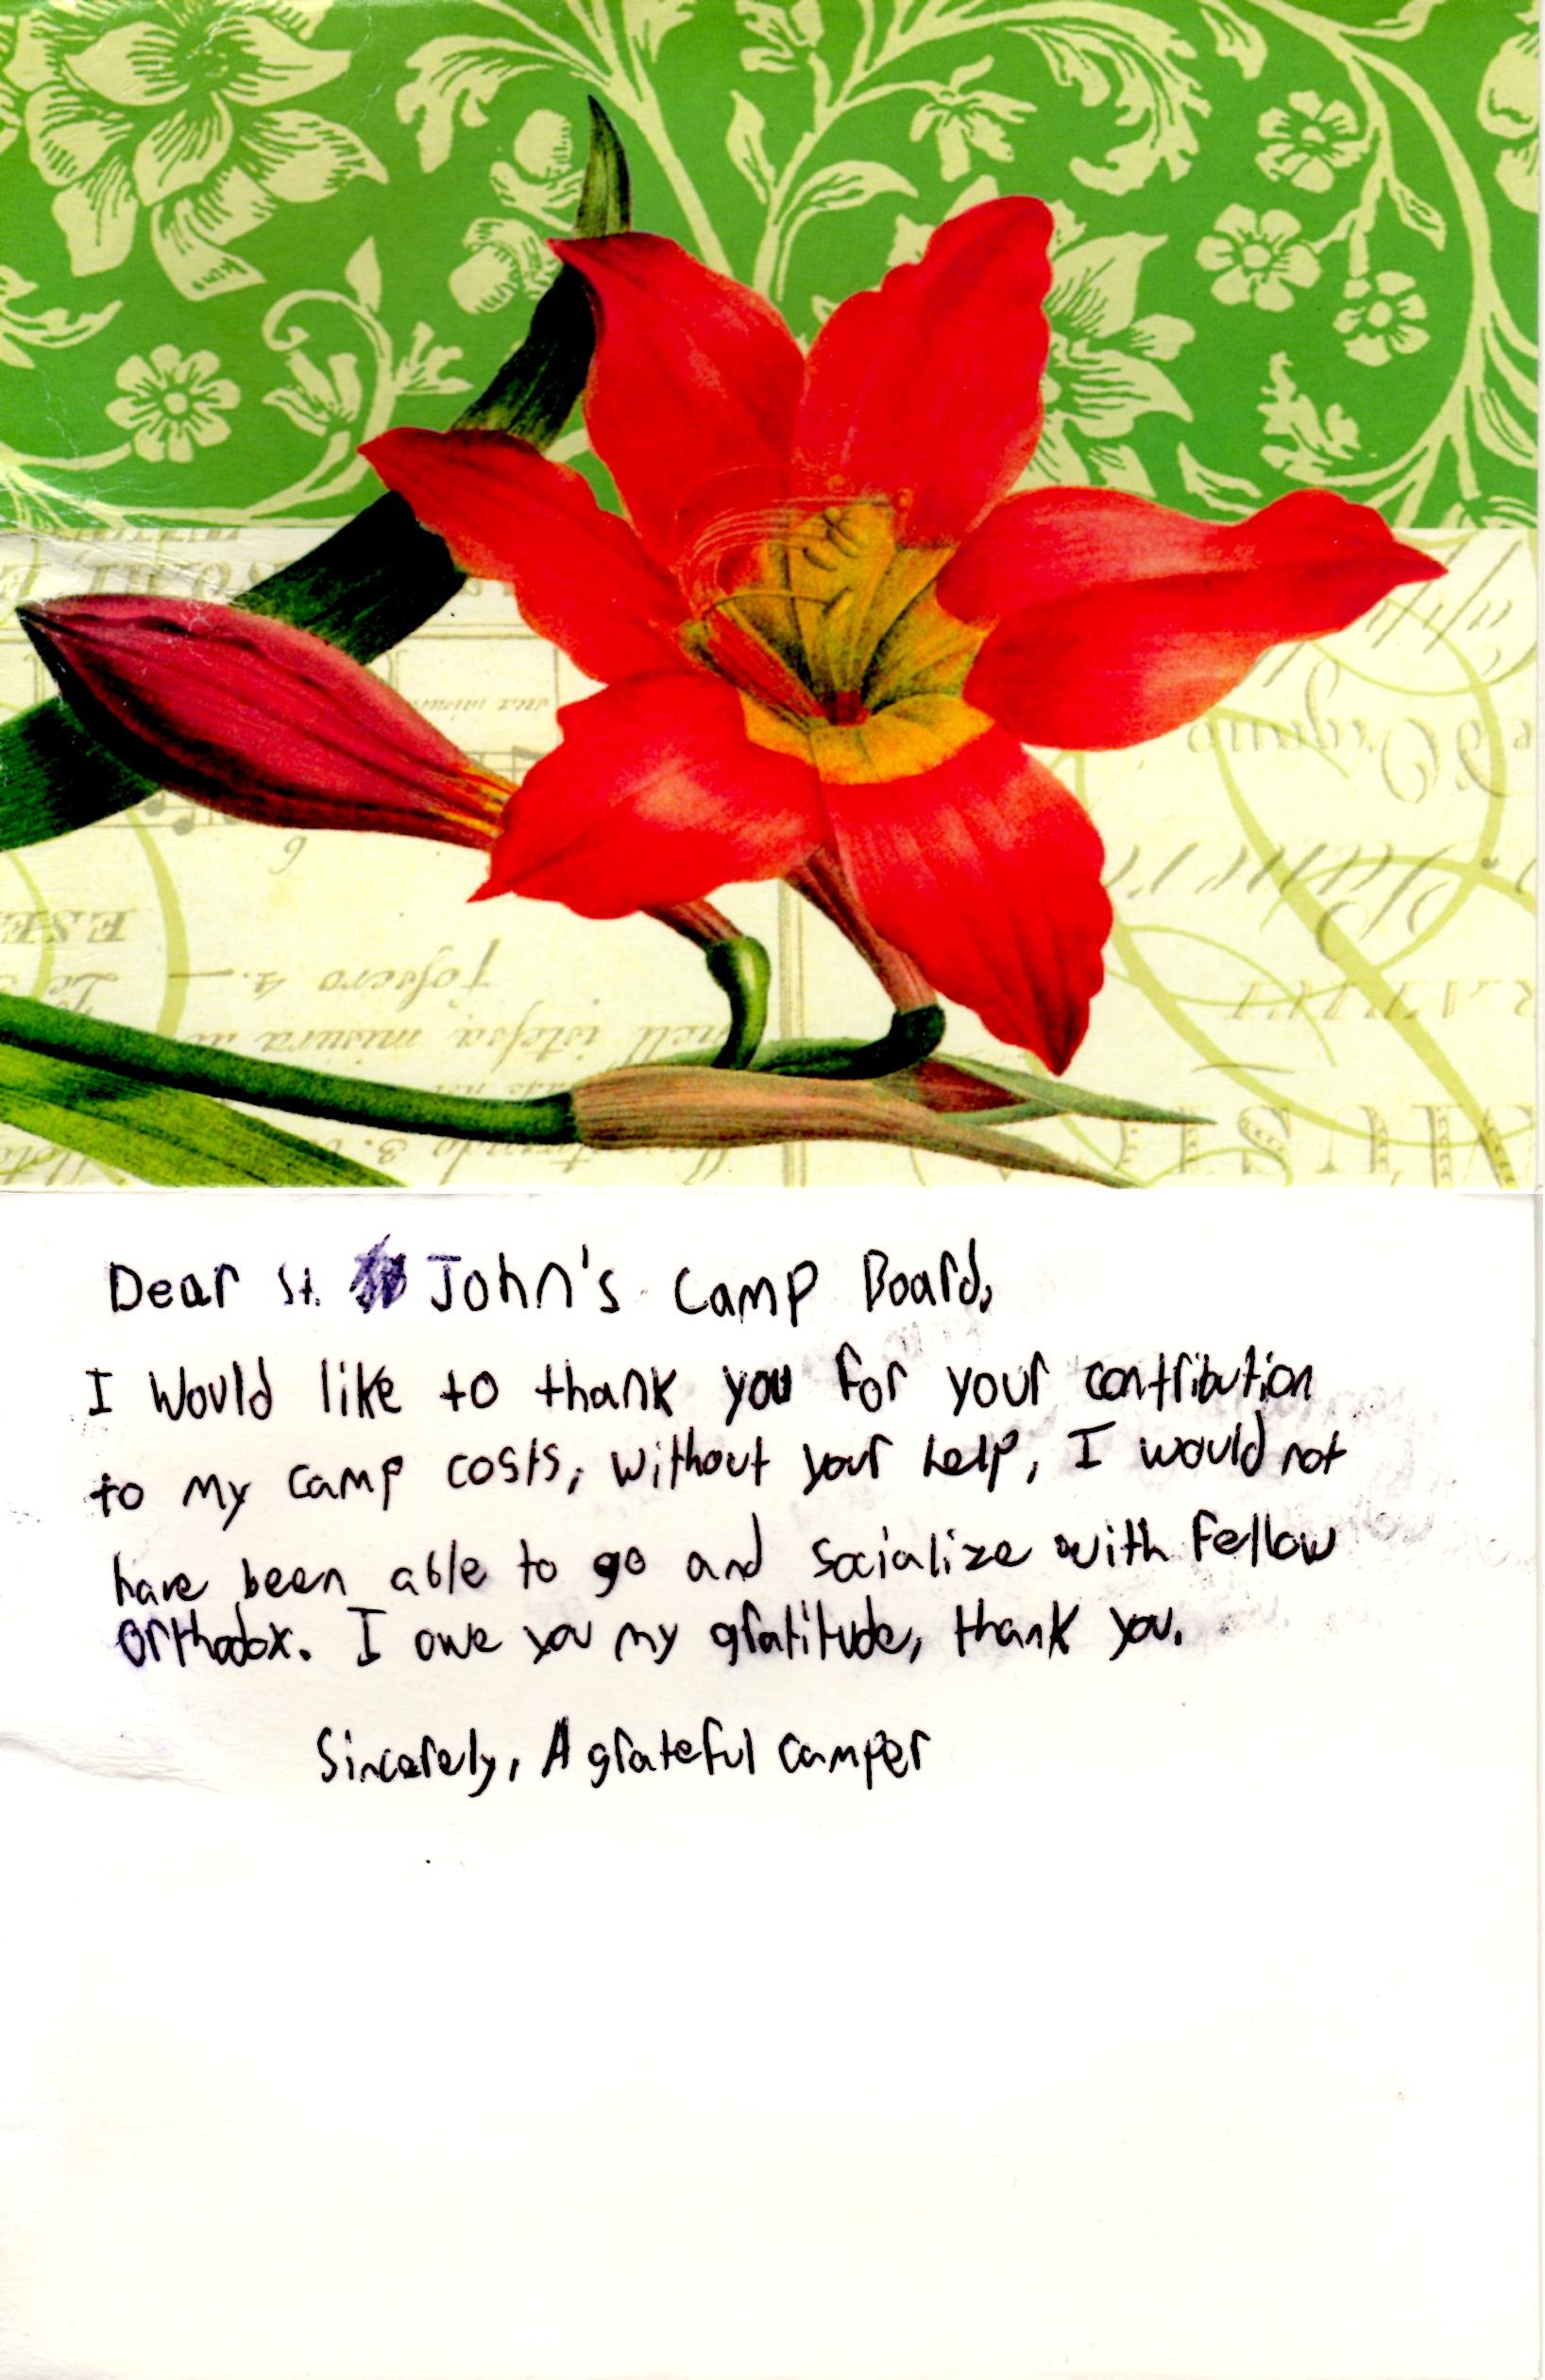 Dear St. John's Camp Board,
I would like to thank you for your contribution
to my camp costs, without your help, I would not
have been able to go and socialize with fellow
Orthodox. I owe you my gratitude, thank you.
Sincerely, A grateful camper